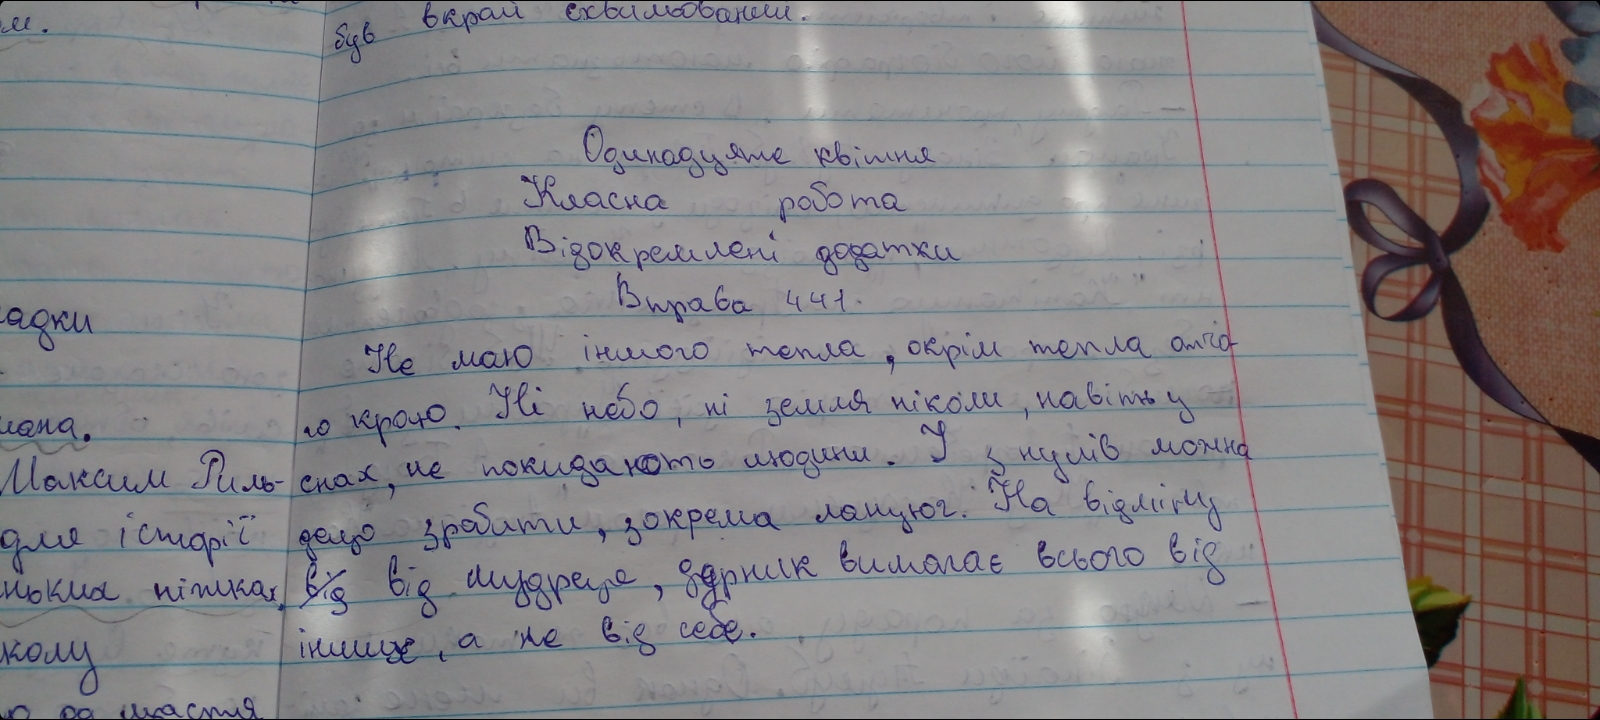 м.
був вкрай схвильований.
Одинадцяте квітня
Класна робота
Відокремлені додатки
Вправа 441.
адки
Не маю іншого тепла, окрім тепла отчо-
го краю. Ні небо, ні земля ніколи, навіть у
лана.
Максим Риль-
снах, не покидають людини. І з нулів можна
для історії
дещо зробити, зокрема ланцюг. На відміну
ньких ніжках,
від мудреця, дурник вимагає всього від
кому
інших, а не від себе.
щастя